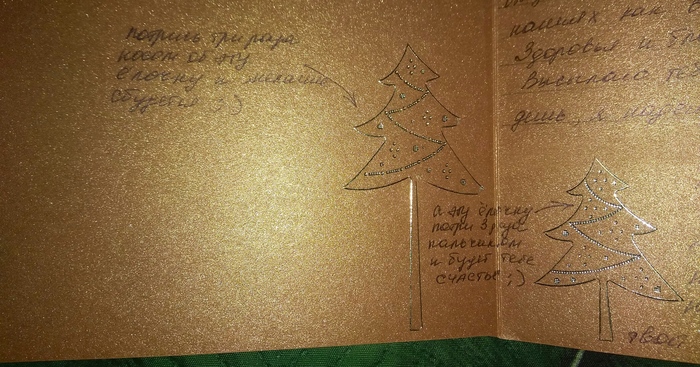 потрись три раза
носом об эту
ёлочку и желание
сбудется ;)
а эту ёлочку
потри 3 раза
пальчиком
и будет тебе
счастье ;)
наших как
Здоровья и
Высылаю
день, я